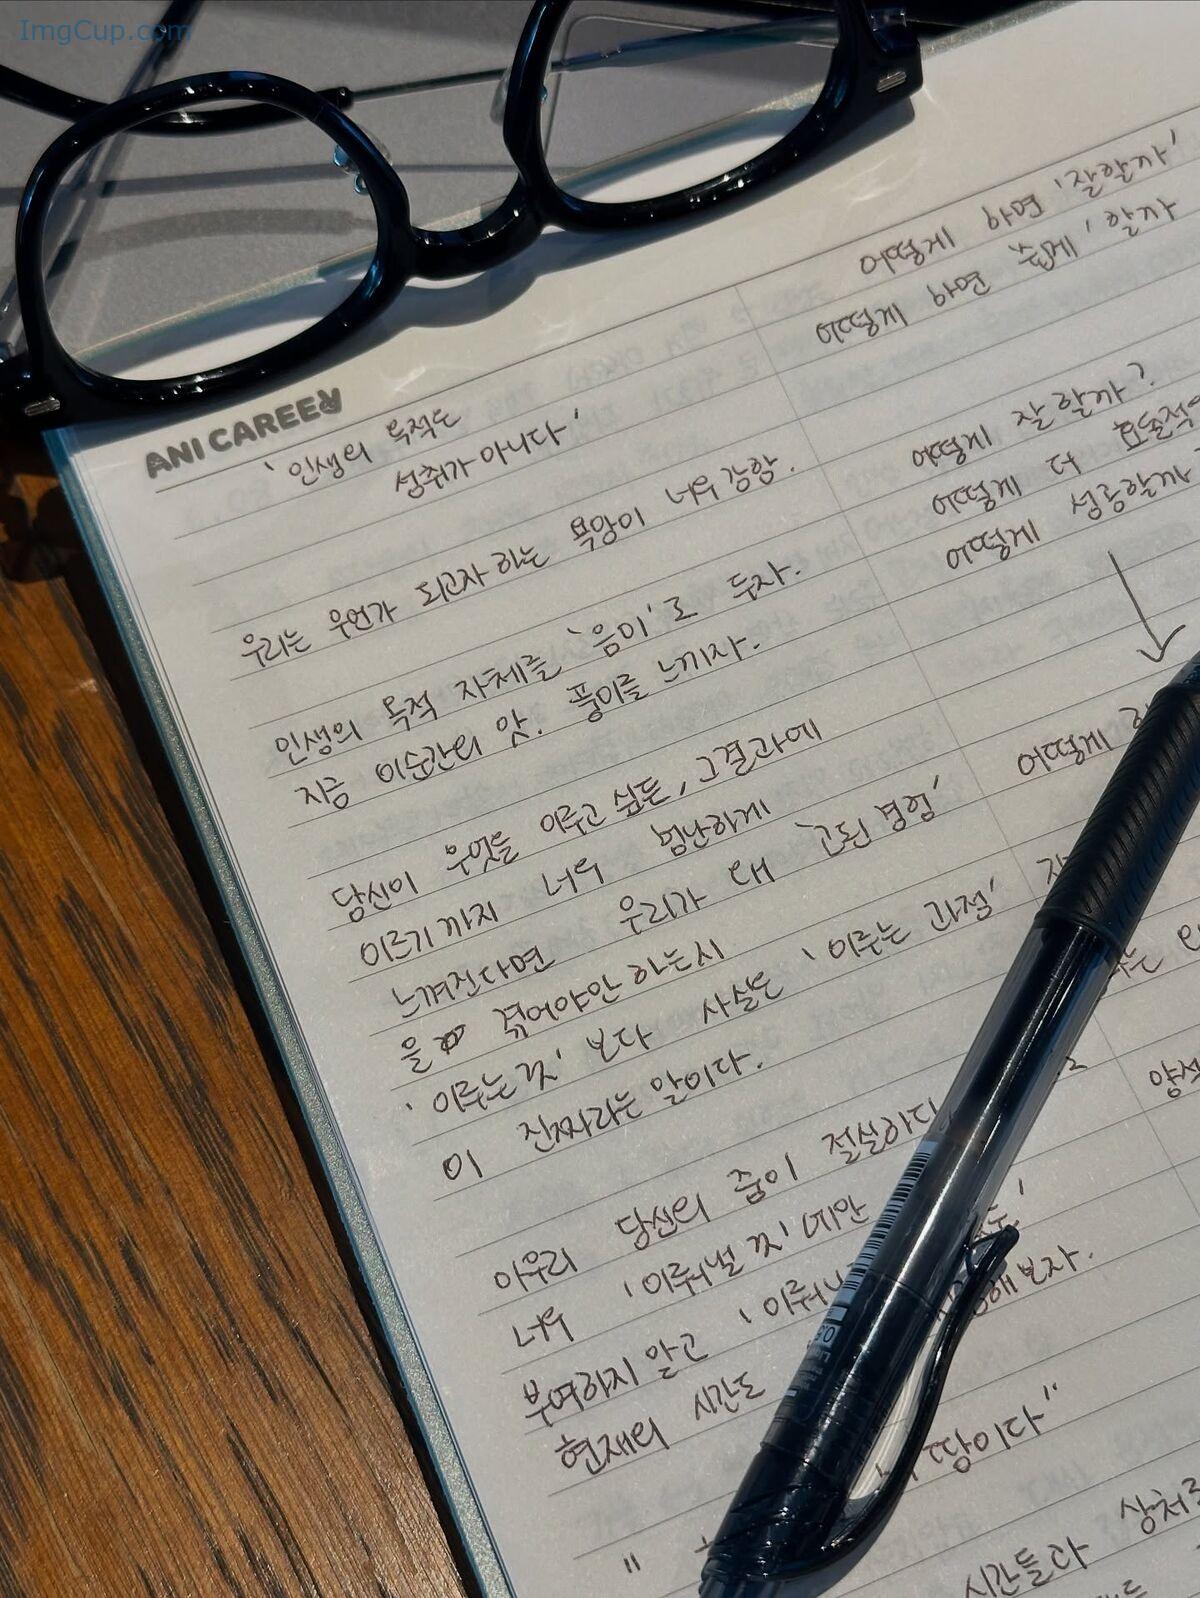 ImgCup.com
ANI CAREER
'인생의 목적은
성취가 아니다'
우리는 무언가 되고자 하는 욕망이 너무 강함.
인생의 목적 자체를 '음미'로 두자.
지금 이순간의 맛. 풍미를 느끼자.
당신이 무엇을 이루고 싶든, 그결과에
이르기까지 너무 험난하게
느껴진다면 우리가 왜 '고된 경험'
을 겪어야만 하는지
'이루는 것' 보다 사실은 '이루는 과정'
이 진짜라는 말이다.
아무리 당신의 꿈이 절실하다
너무 '이뤄낼 것'에만
부여하지 말고 '이뤄
현재의 시간도 해보자.
이다"
어떻게 하면 '잘할까'
어떻게 하면 쉽게' 할까
어떻게 잘 할까?
어떻게 더 효율적
어떻게 성공할까
어떻게
시간들과 상처